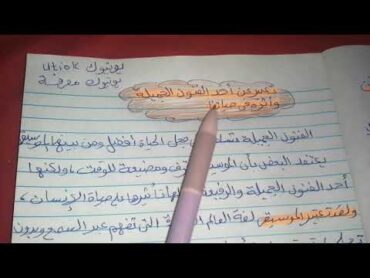 يوتيوك Utiok
يوتيوك معرفة
تعبير عن أحد الفنون الجميلة
وأثره في حياتنا
الفنون الجميلة تساهم في جعل الحياة أفضل ومن بينها الموسيقى
يعتقد البعض بأن الموسيقى ومضيعة للوقت، ولكنها
أحد الفنون الجميلة والرفيعة لها تأثيرها على حياة الإنسان،
ولقد تعتبر الموسيقى لغة العالم التي تفهم عبر السمع وبدون